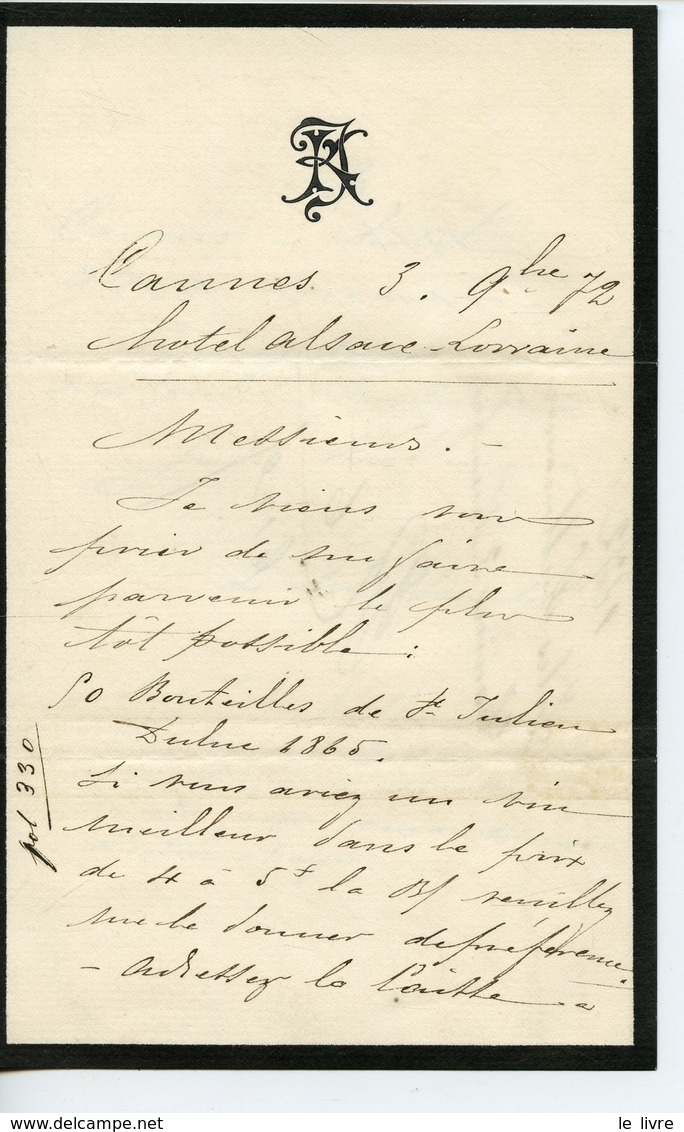 Cannes 3. 9bre 72
hotel alsace-Lorraine
Messieurs. -
Je viens vous
prier de me faire
parvenir le plus
tôt possible :
50 Bouteilles de St Julien
Duluc 1865.
Si vous aviez un vin
meilleur dans le prix
de 4 à 5f la B/ veuillez
me le donner de préférence.
- adressez la Caisse à
fol 330
le livre